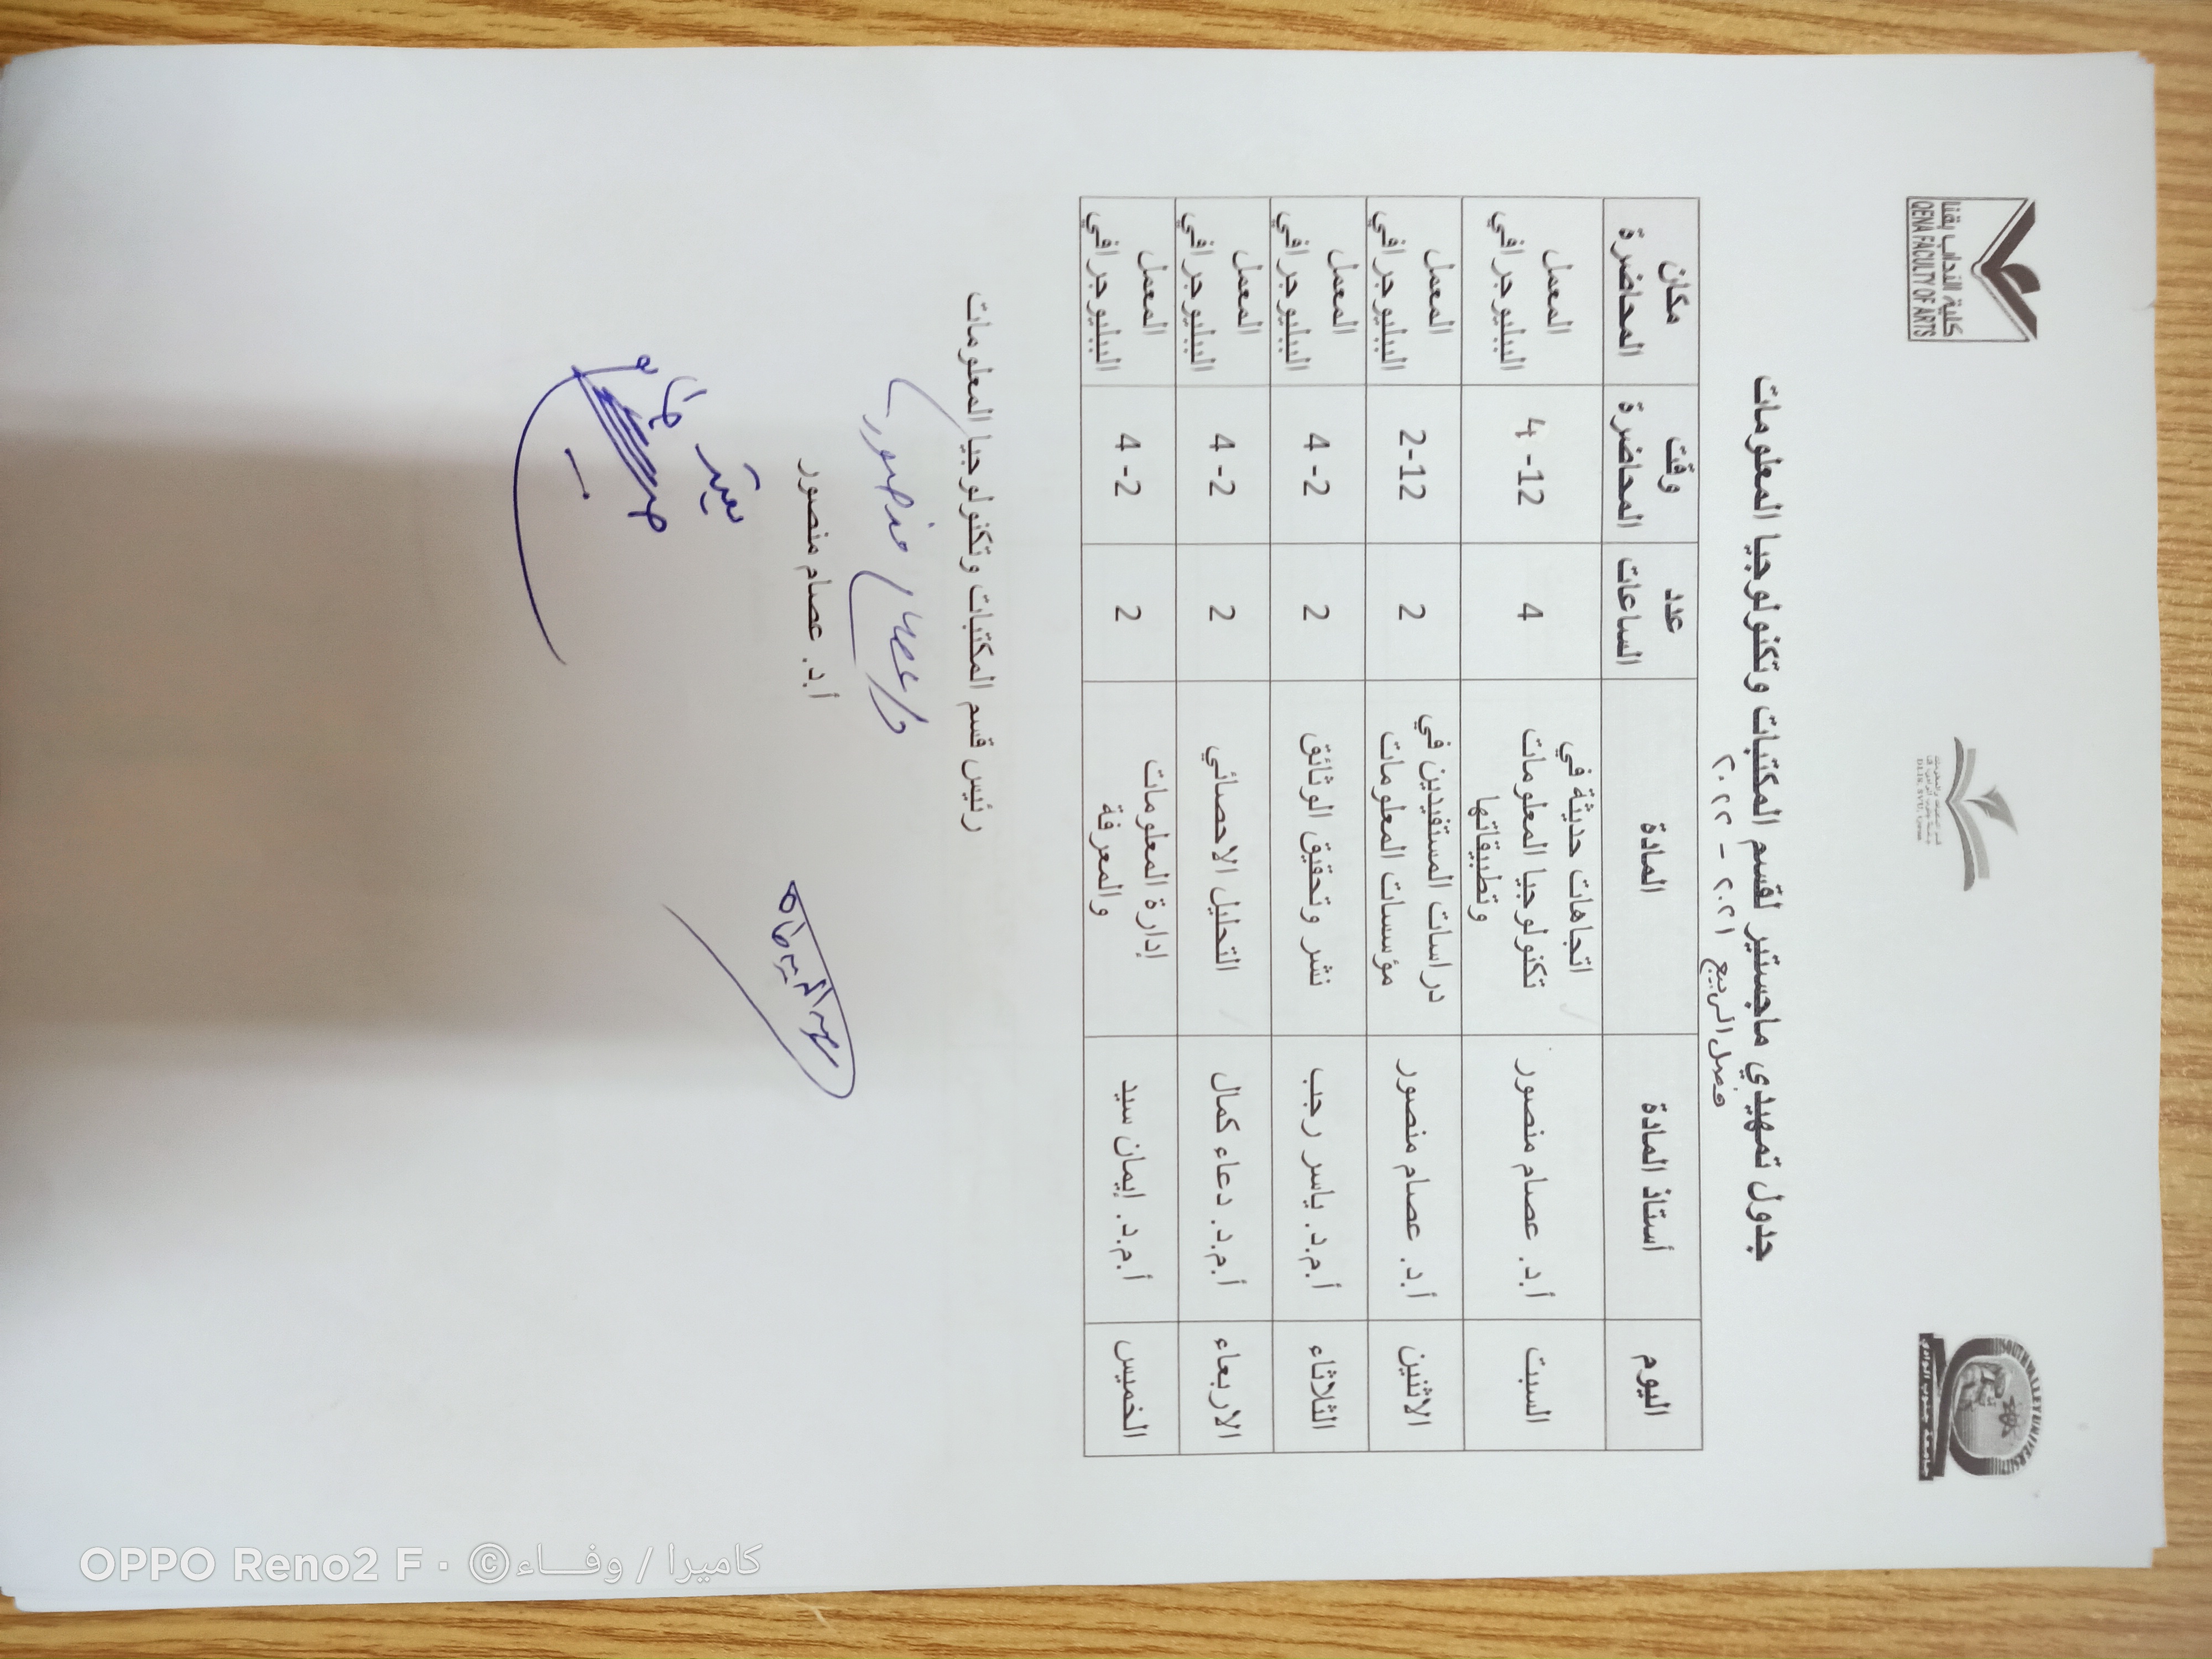 كلية الآداب بقنا
QENA FACULTY OF ARTS
SOUTH VALLEY UNIVERSITY
جامعة جنوب الوادي
جدول تمهيدي ماجستير لقسم المكتبات وتكنولوجيا المعلومات
فصل الربيع ٢٠٢١ - ٢٠٢٢
اليوم أستاذ المادة المادة عدد الساعات وقت المحاضرة مكان المحاضرة
السبت أ.د. عصام منصور اتجاهات حديثة في تكنولوجيا المعلومات وتطبيقاتها 4 12- 4 المعمل الببليوجرافي
الاثنين أ.د. عصام منصور دراسات المستفيدين في مؤسسات المعلومات 2 12-2 المعمل الببليوجرافي
الثلاثاء أ.م.د. ياسر رجب نشر وتحقيق الوثائق 2 2- 4 المعمل الببليوجرافي
الاربعاء أ.م.د. دعاء كمال التحليل الاحصائي 2 2- 4 المعمل الببليوجرافي
الخميس أ.م.د. إيمان سيد إدارة المعلومات والمعرفة 2 2- 4 المعمل الببليوجرافي
رئيس قسم المكتبات وتكنولوجيا المعلومات
د/ عصام منصور
أ.د. عصام منصور
OPPO Reno2 F · ©كاميرا / وفــــاء